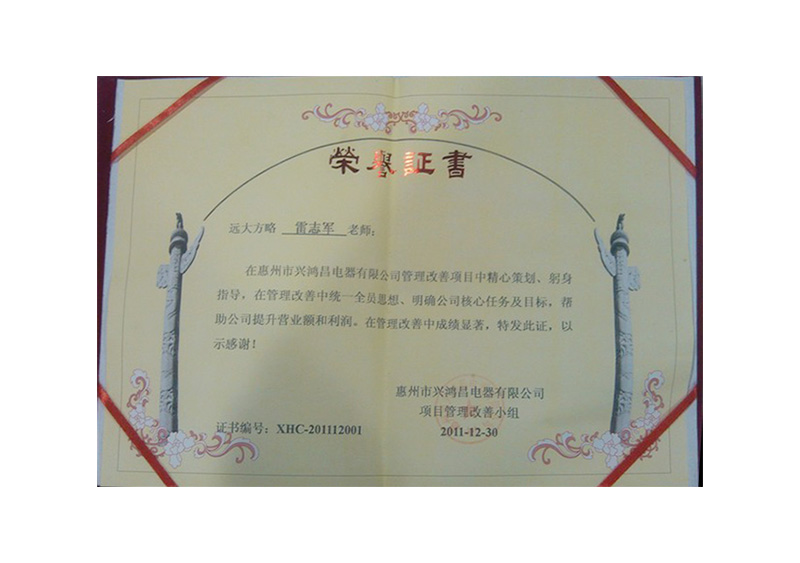 榮譽証書
远大方略 雷志军 老师：
在惠州市兴鸿昌电器有限公司管理改善项目中精心策划、躬身
指导，在管理改善中统一全员思想、明确公司核心任务及目标，帮
助公司提升营业额和利润。在管理改善中成绩显著，特发此证，以
示感谢！
惠州市兴鸿昌电器有限公司
项目管理改善小组
证书编号：XHC-201112001
2011-12-30